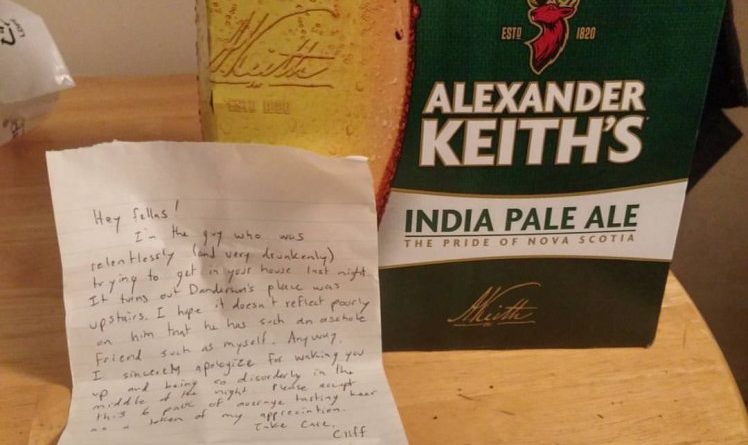 Keith
ESTD 1820
ESTD 1820
ALEXANDER
KEITH'S
INDIA PALE ALE
THE PRIDE OF NOVA SCOTIA
AKeith
Hey fellas!
I'm the guy who was
relentlessly (and very drunkenly)
trying to get in your house last night.
It turns out Danderson's place was
upstairs. I hope it doesn't reflect poorly
on him that he has such an asshole
friend such as myself. Anyway,
I sincerely apologize for waking you
up and being so disorderly in the
middle of the night. Please accept
this 6 pack of average tasting beer
as a token of my appreciation.
Take Care,
Cliff